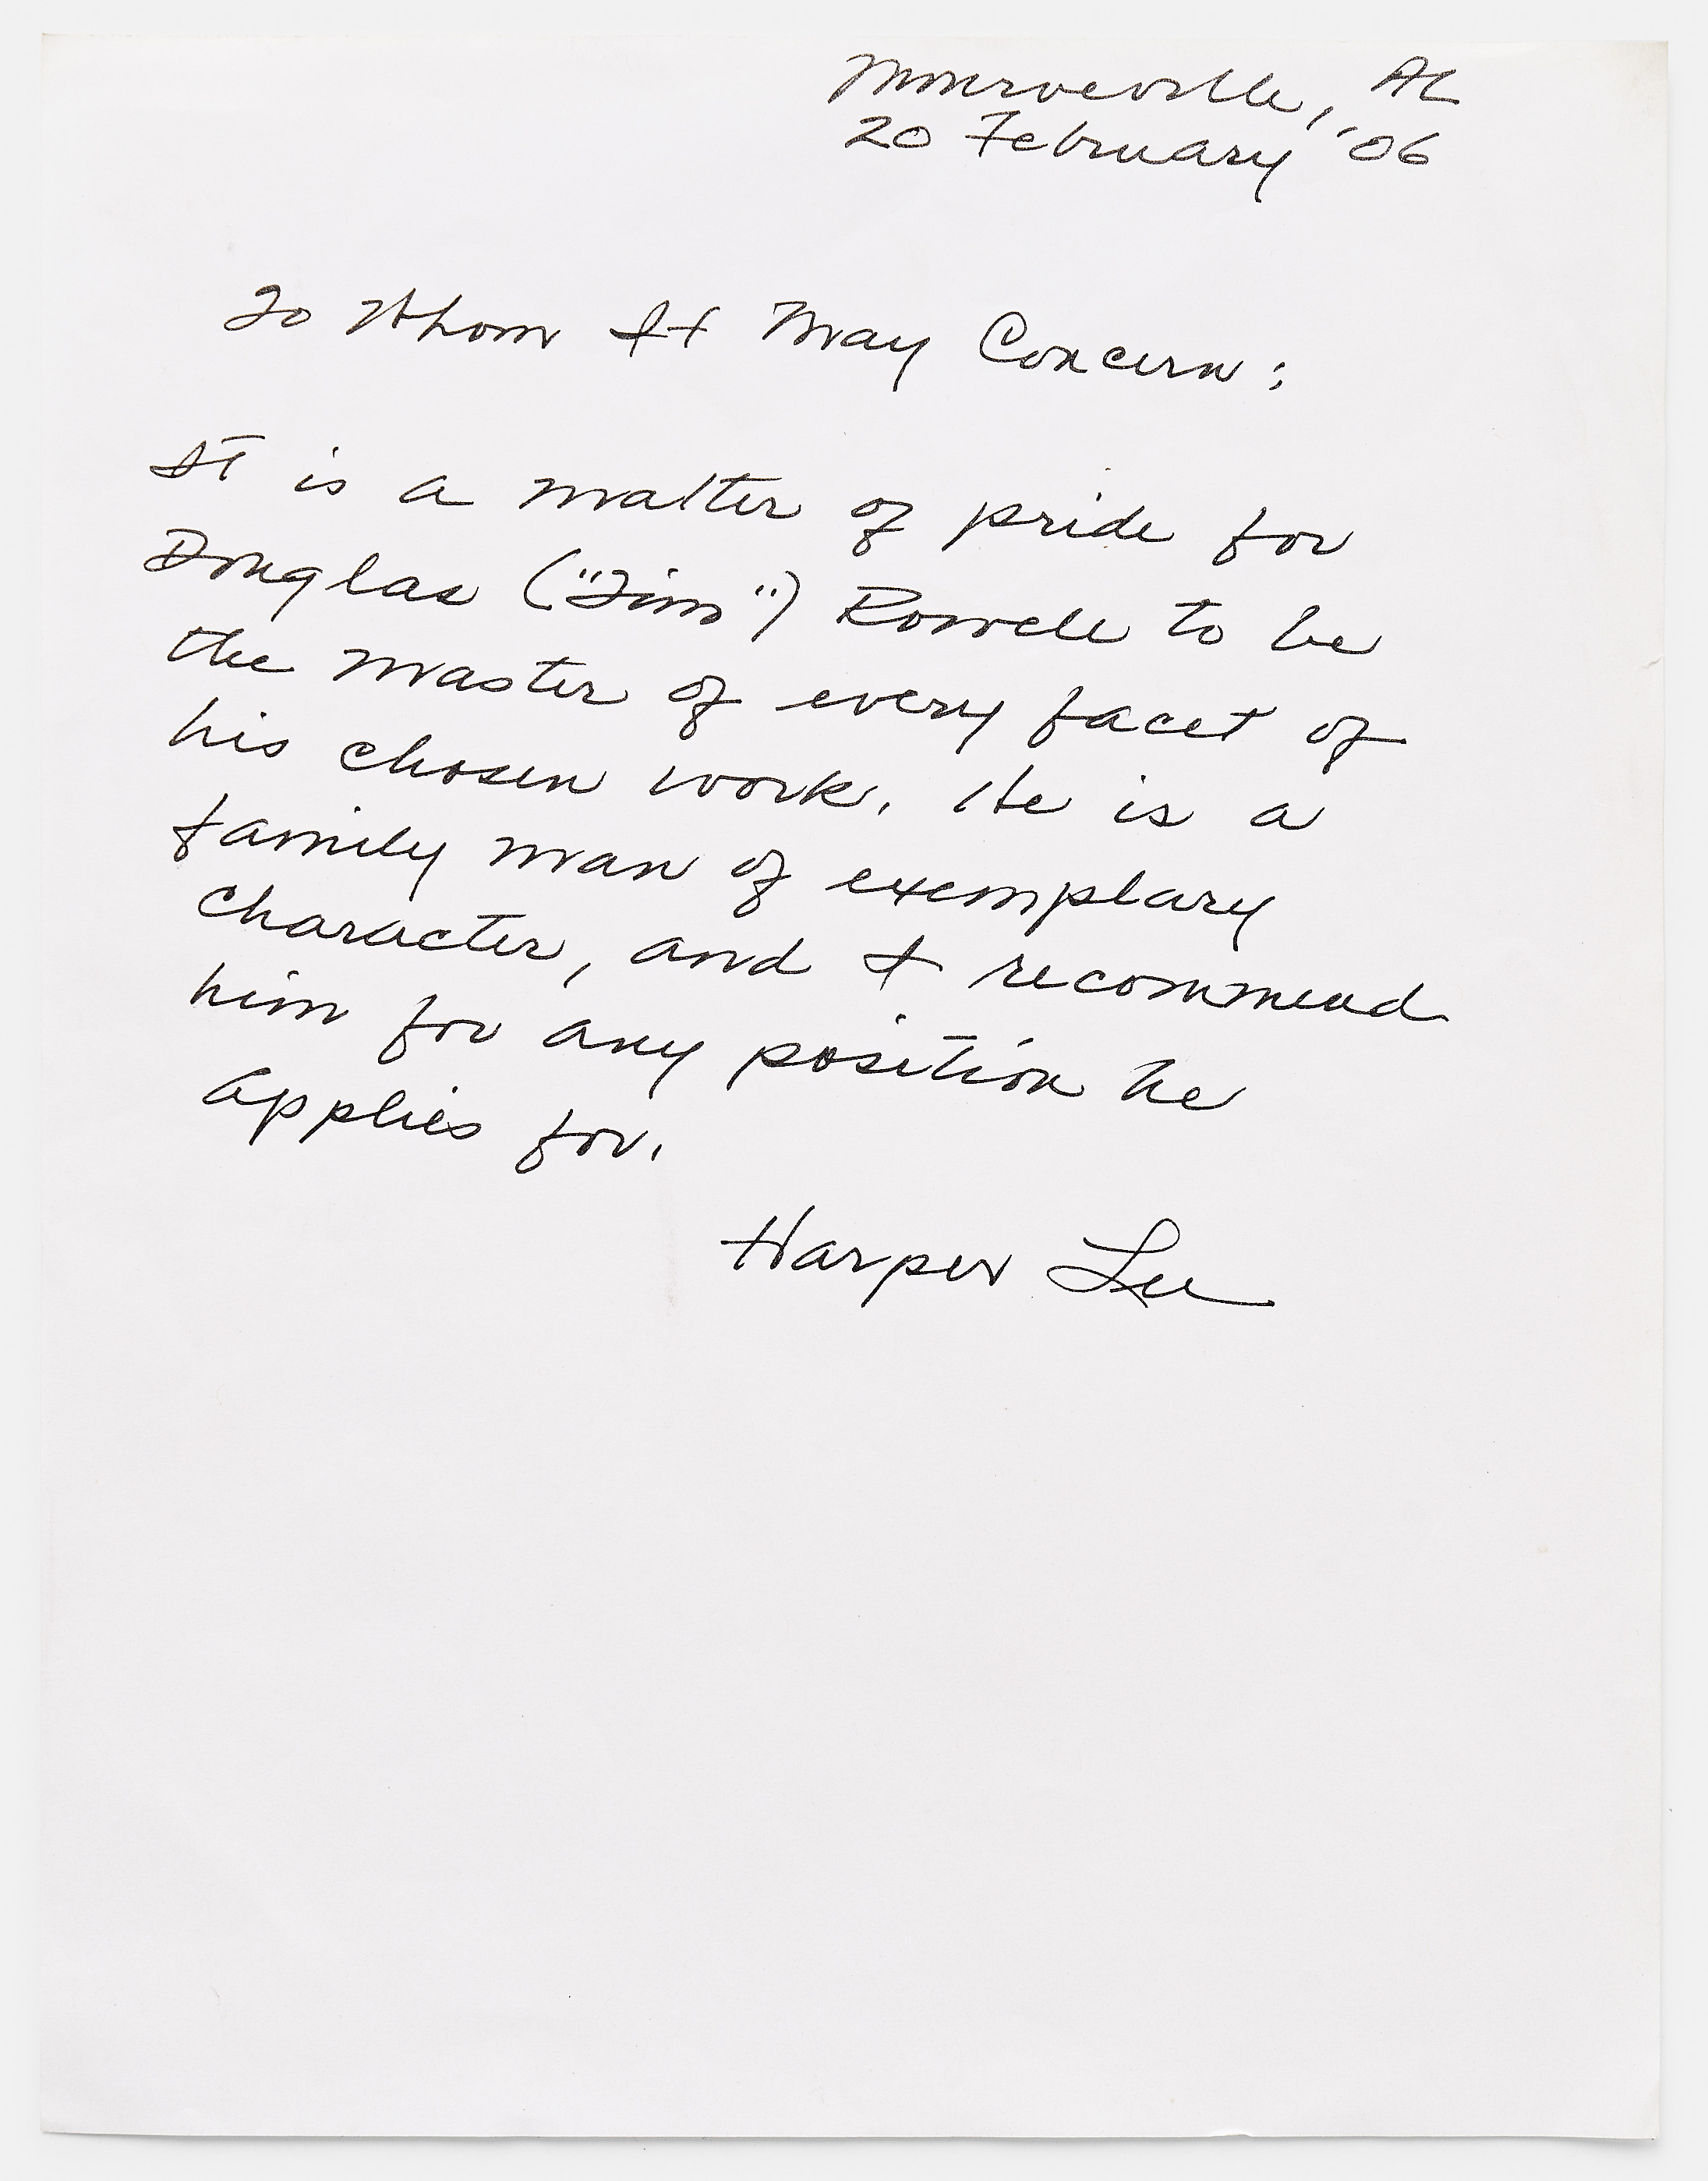 Monroeville, AL
20 February '06
To Whom It May Concern:
It is a matter of pride for
Douglas ("Tim") to be
the master of every facet of
his chosen work. He is a
family man of exemplary
character, and I recommend
him for any position he
applies for.
Harper Lee